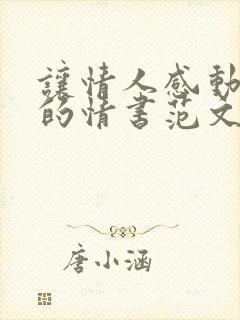 讓情人感動
的情書范文
唐小涵